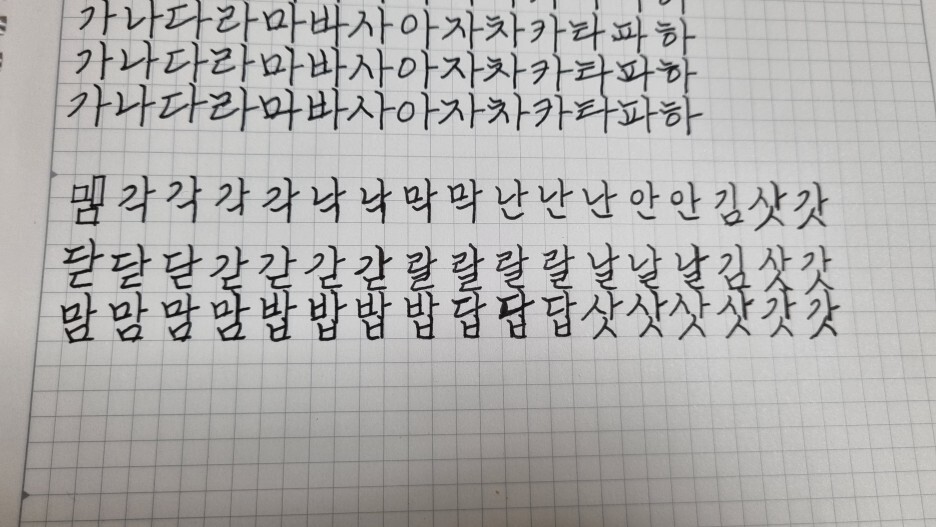 가나다라마바사아자차카타파하
가나다라마바사아자차카타파하
가나다라마바사아자차카타파하
각 각 각 각 낙 낙 막 막 난 난 난 안 안 김 삿 갓
닫 닫 닫 갇 갇 갇 갇 랄 랄 랄 랄 날 날 날 김 삿 갓
맘 맘 맘 맘 밥 밥 밥 밥 답 답 답 삿 삿 삿 삿 갓 갓